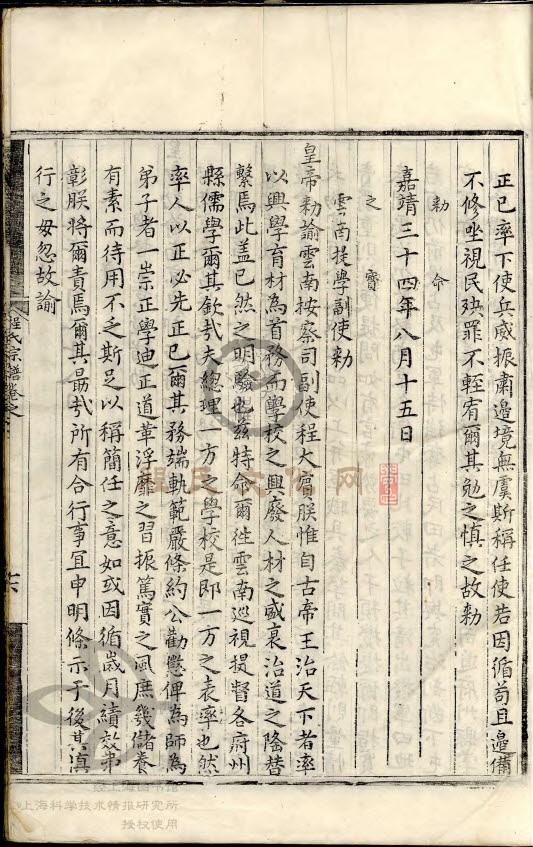 正已率下使兵威振肅邊境無虞斯稱任使若因循苟且邊備
不修坐視民殃罪不輕宥爾其勉之慎之故勅
勅命
嘉靖三十四年八月十五日
之寶
雲南提學副使勅
皇帝勅諭雲南按察司副使程大賓朕惟自古帝王治天下者率
以興學育材為首務而學校之興廢人材之盛衰治道之隆替
繫焉此盖已然之明驗也茲特命爾徃雲南巡視提督各府州
縣儒學爾其欽哉夫總理一方之學校是即一方之表率也然
率人以正必先正已爾其務端軌範嚴條約公勸懲俾為師為
弟子者一崇正學迪正道革浮靡之習振篤實之風庶幾儲養
有素而待用不乏斯足以稱簡任之意如或因循歲月績效弗
彰朕將爾責焉爾其勗哉所有合行事宜申明條示于後其慎
行之毋忽故諭
程氏宗譜卷之
上海科学技术情报研究所
授权使用